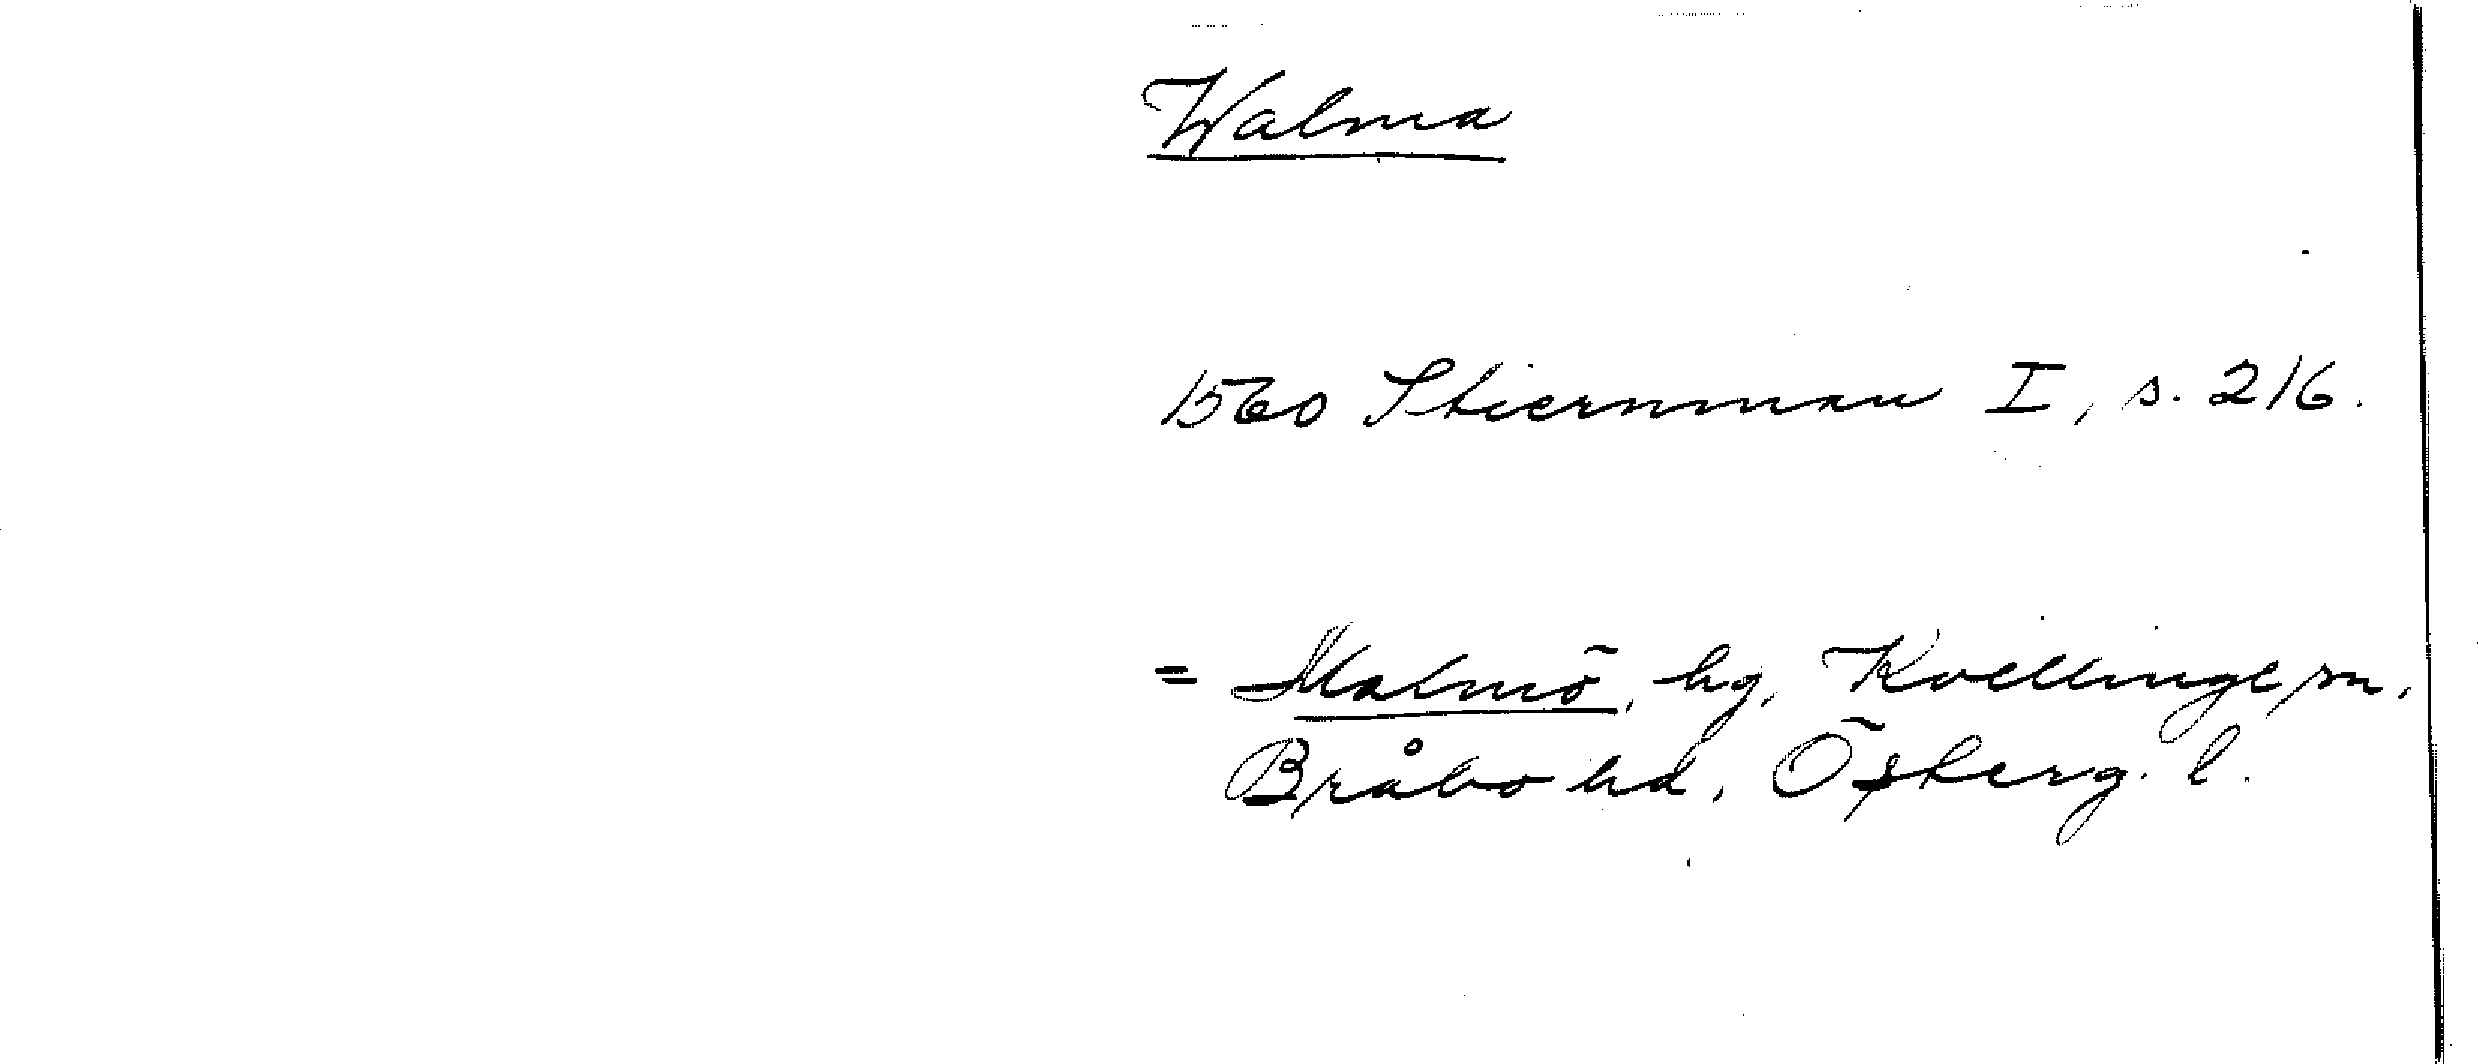 Walma
1560 Stiernman I, s. 216.
= Malmö, hg, Kvillinge sn,
Bråbo hd, Österg. l.